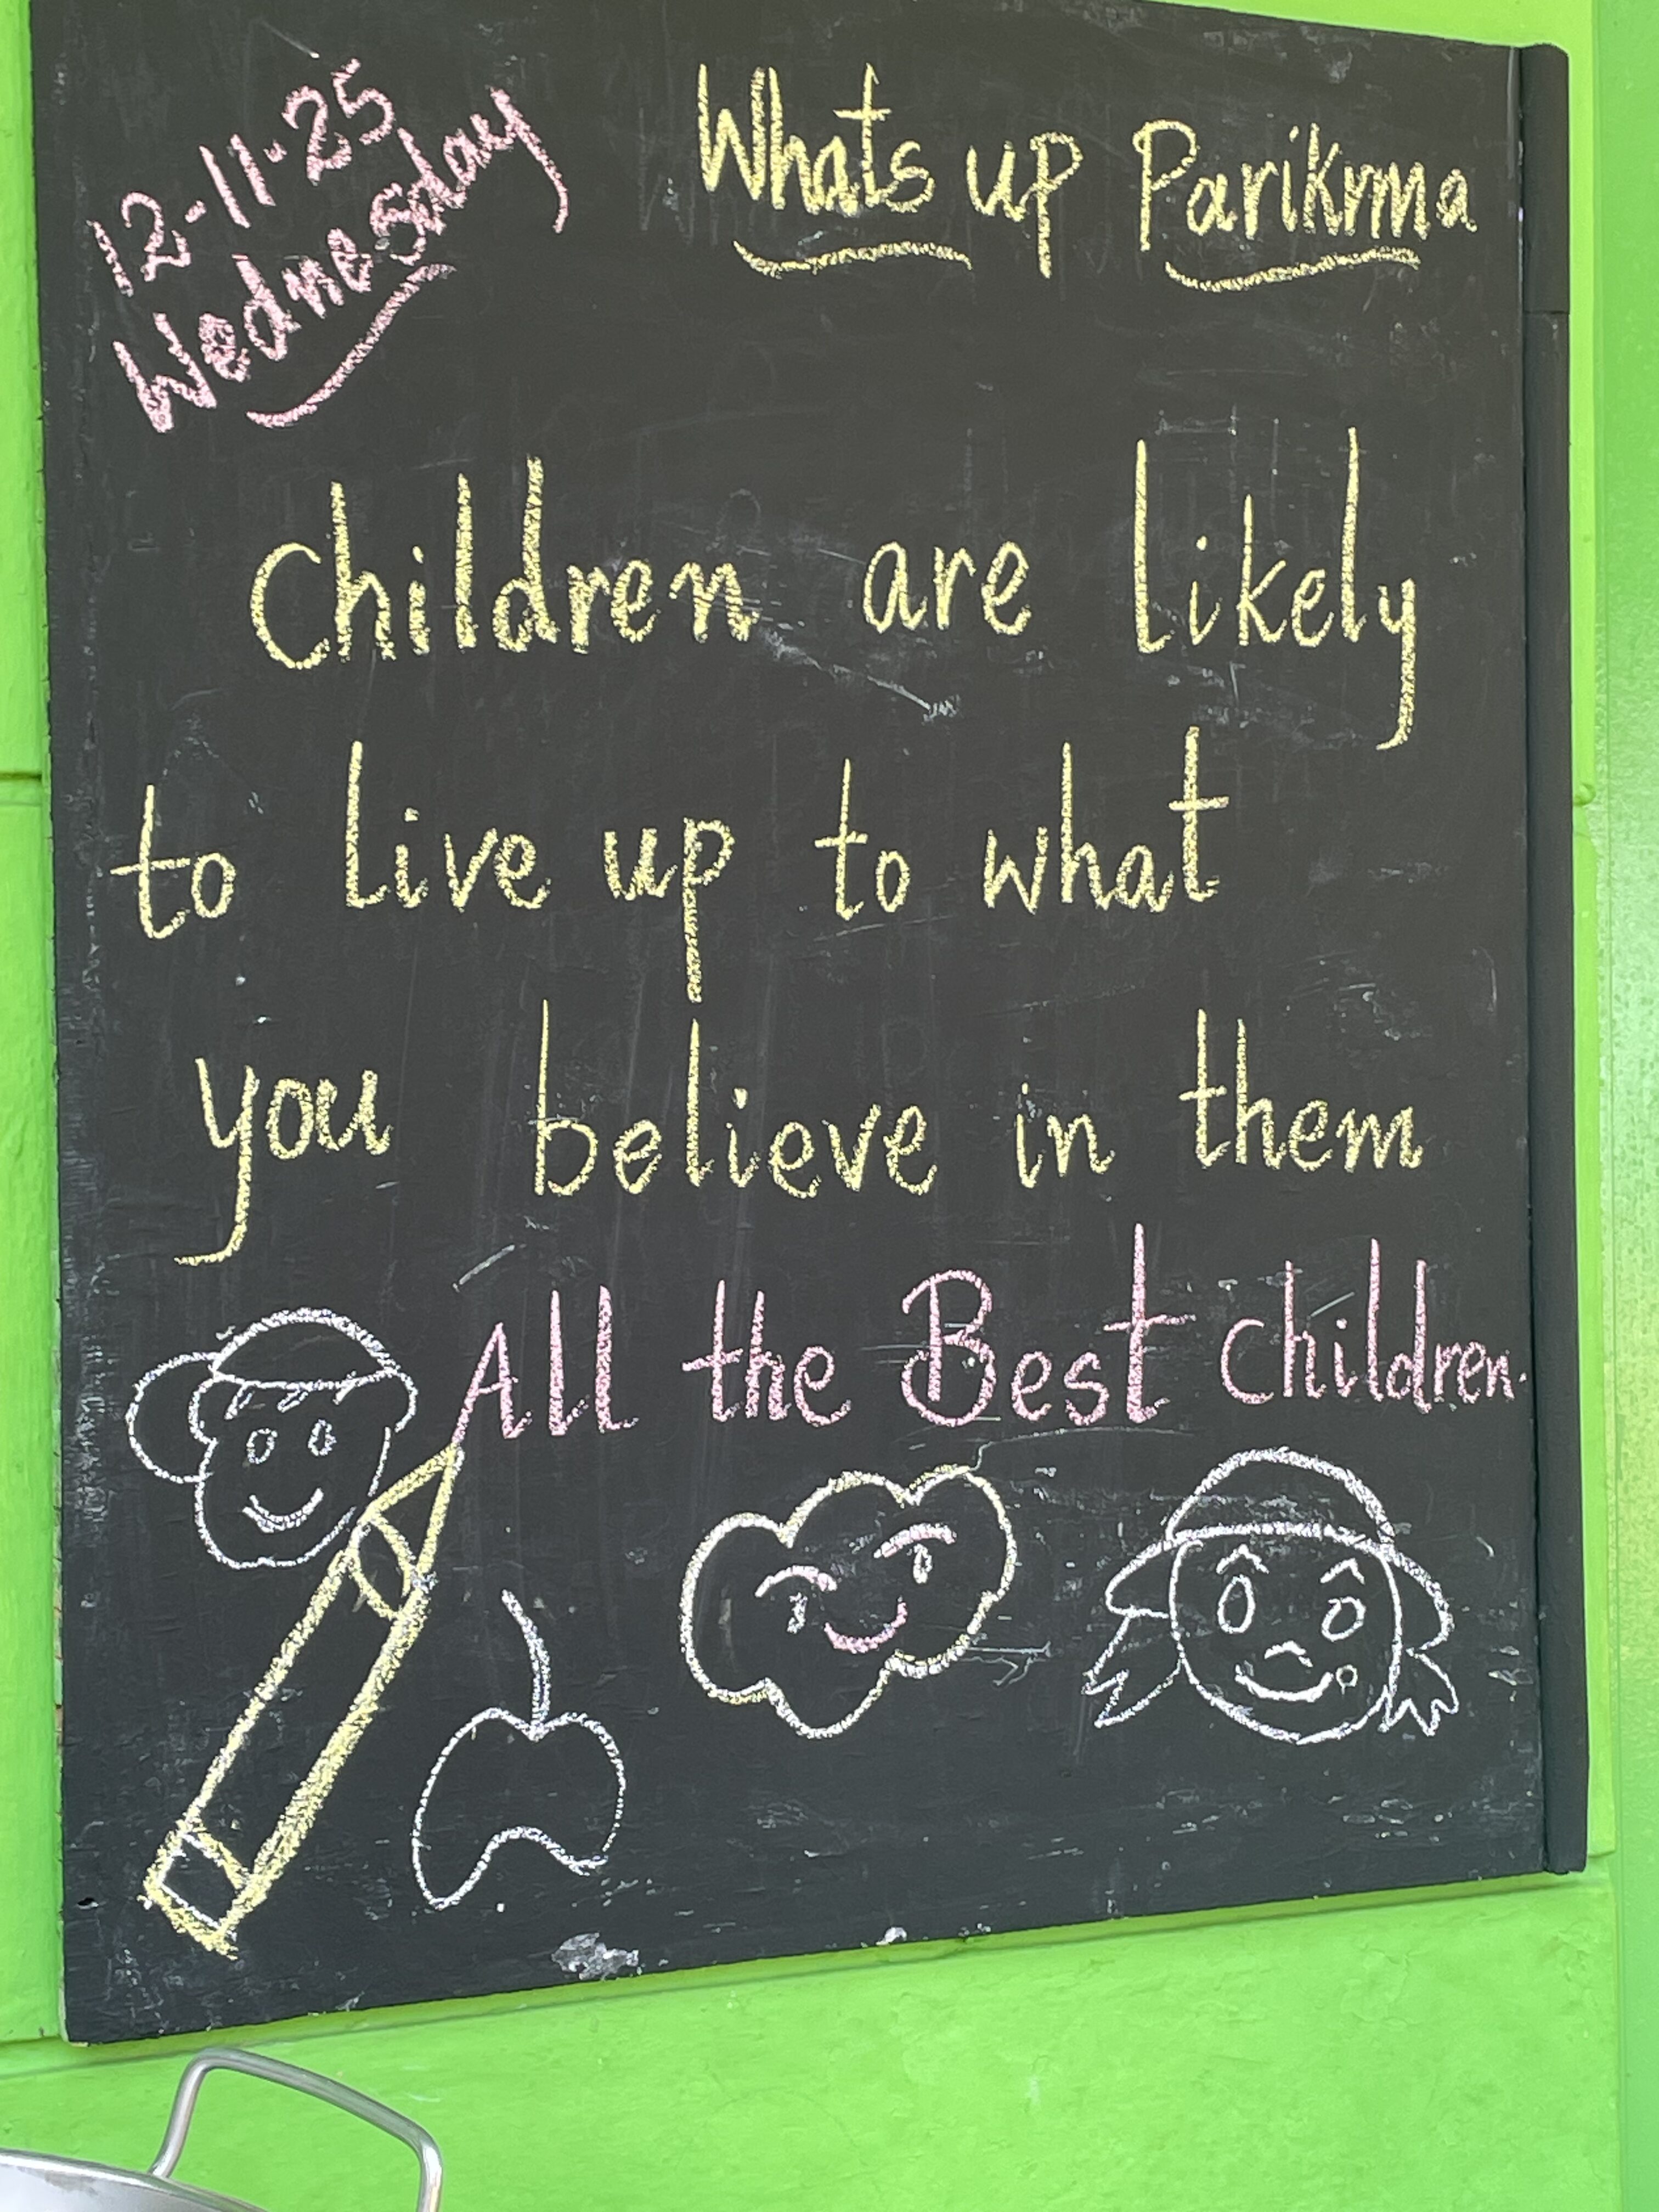 12-11-25
Wednesday
Whats up Parikrma
Children are likely
to live up to what
you believe in them
All the Best Children.